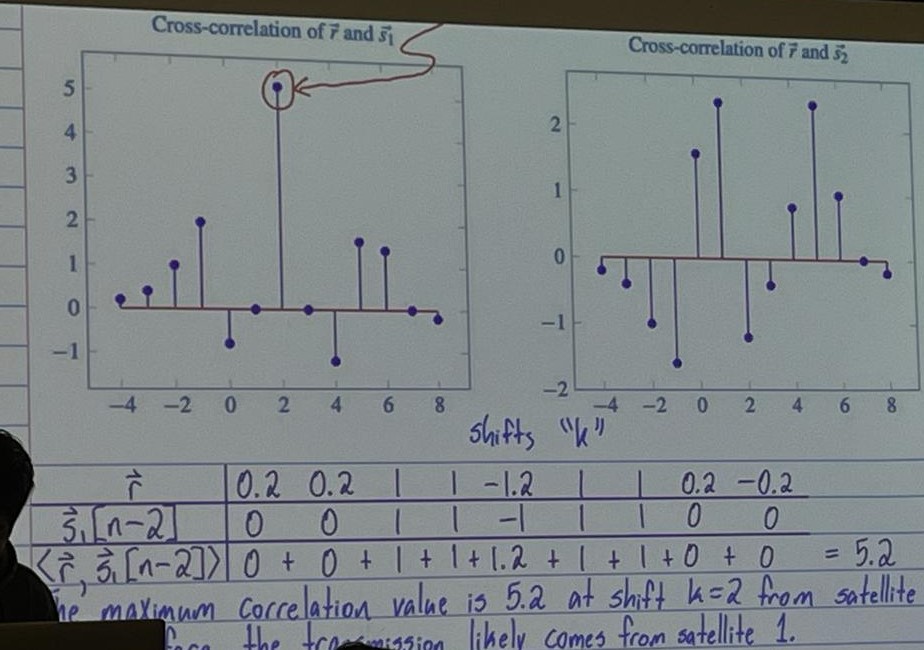 Cross-correlation of r⃗ and s⃗₁
5
4
3
2
1
0
−1
−4 −2 0 2 4 6 8
Cross-correlation of r⃗ and s⃗₂
2
1
0
−1
−2
−4 −2 0 2 4 6 8
shifts "k"
r⃗ 0.2 0.2 1 1 −1.2 1 1 0.2 −0.2
s⃗₁[n−2] 0 0 1 1 −1 1 1 0 0
⟨r⃗, s⃗₁[n−2]⟩ 0 + 0 + 1 + 1 + 1.2 + 1 + 1 + 0 + 0 = 5.2
maximum correlation value is 5.2 at shift k=2 from satellite
the transmission likely comes from satellite 1.